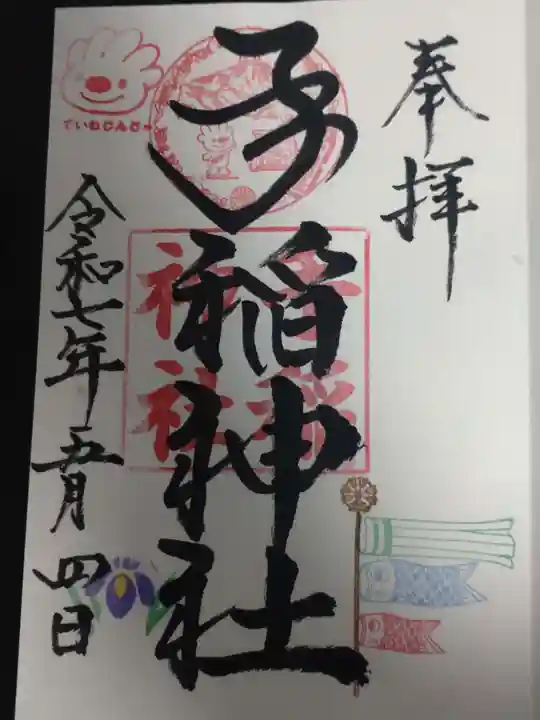 奉拝
手稲神社
令和七年五月四日
ていねじんじゃ
手稲
神社